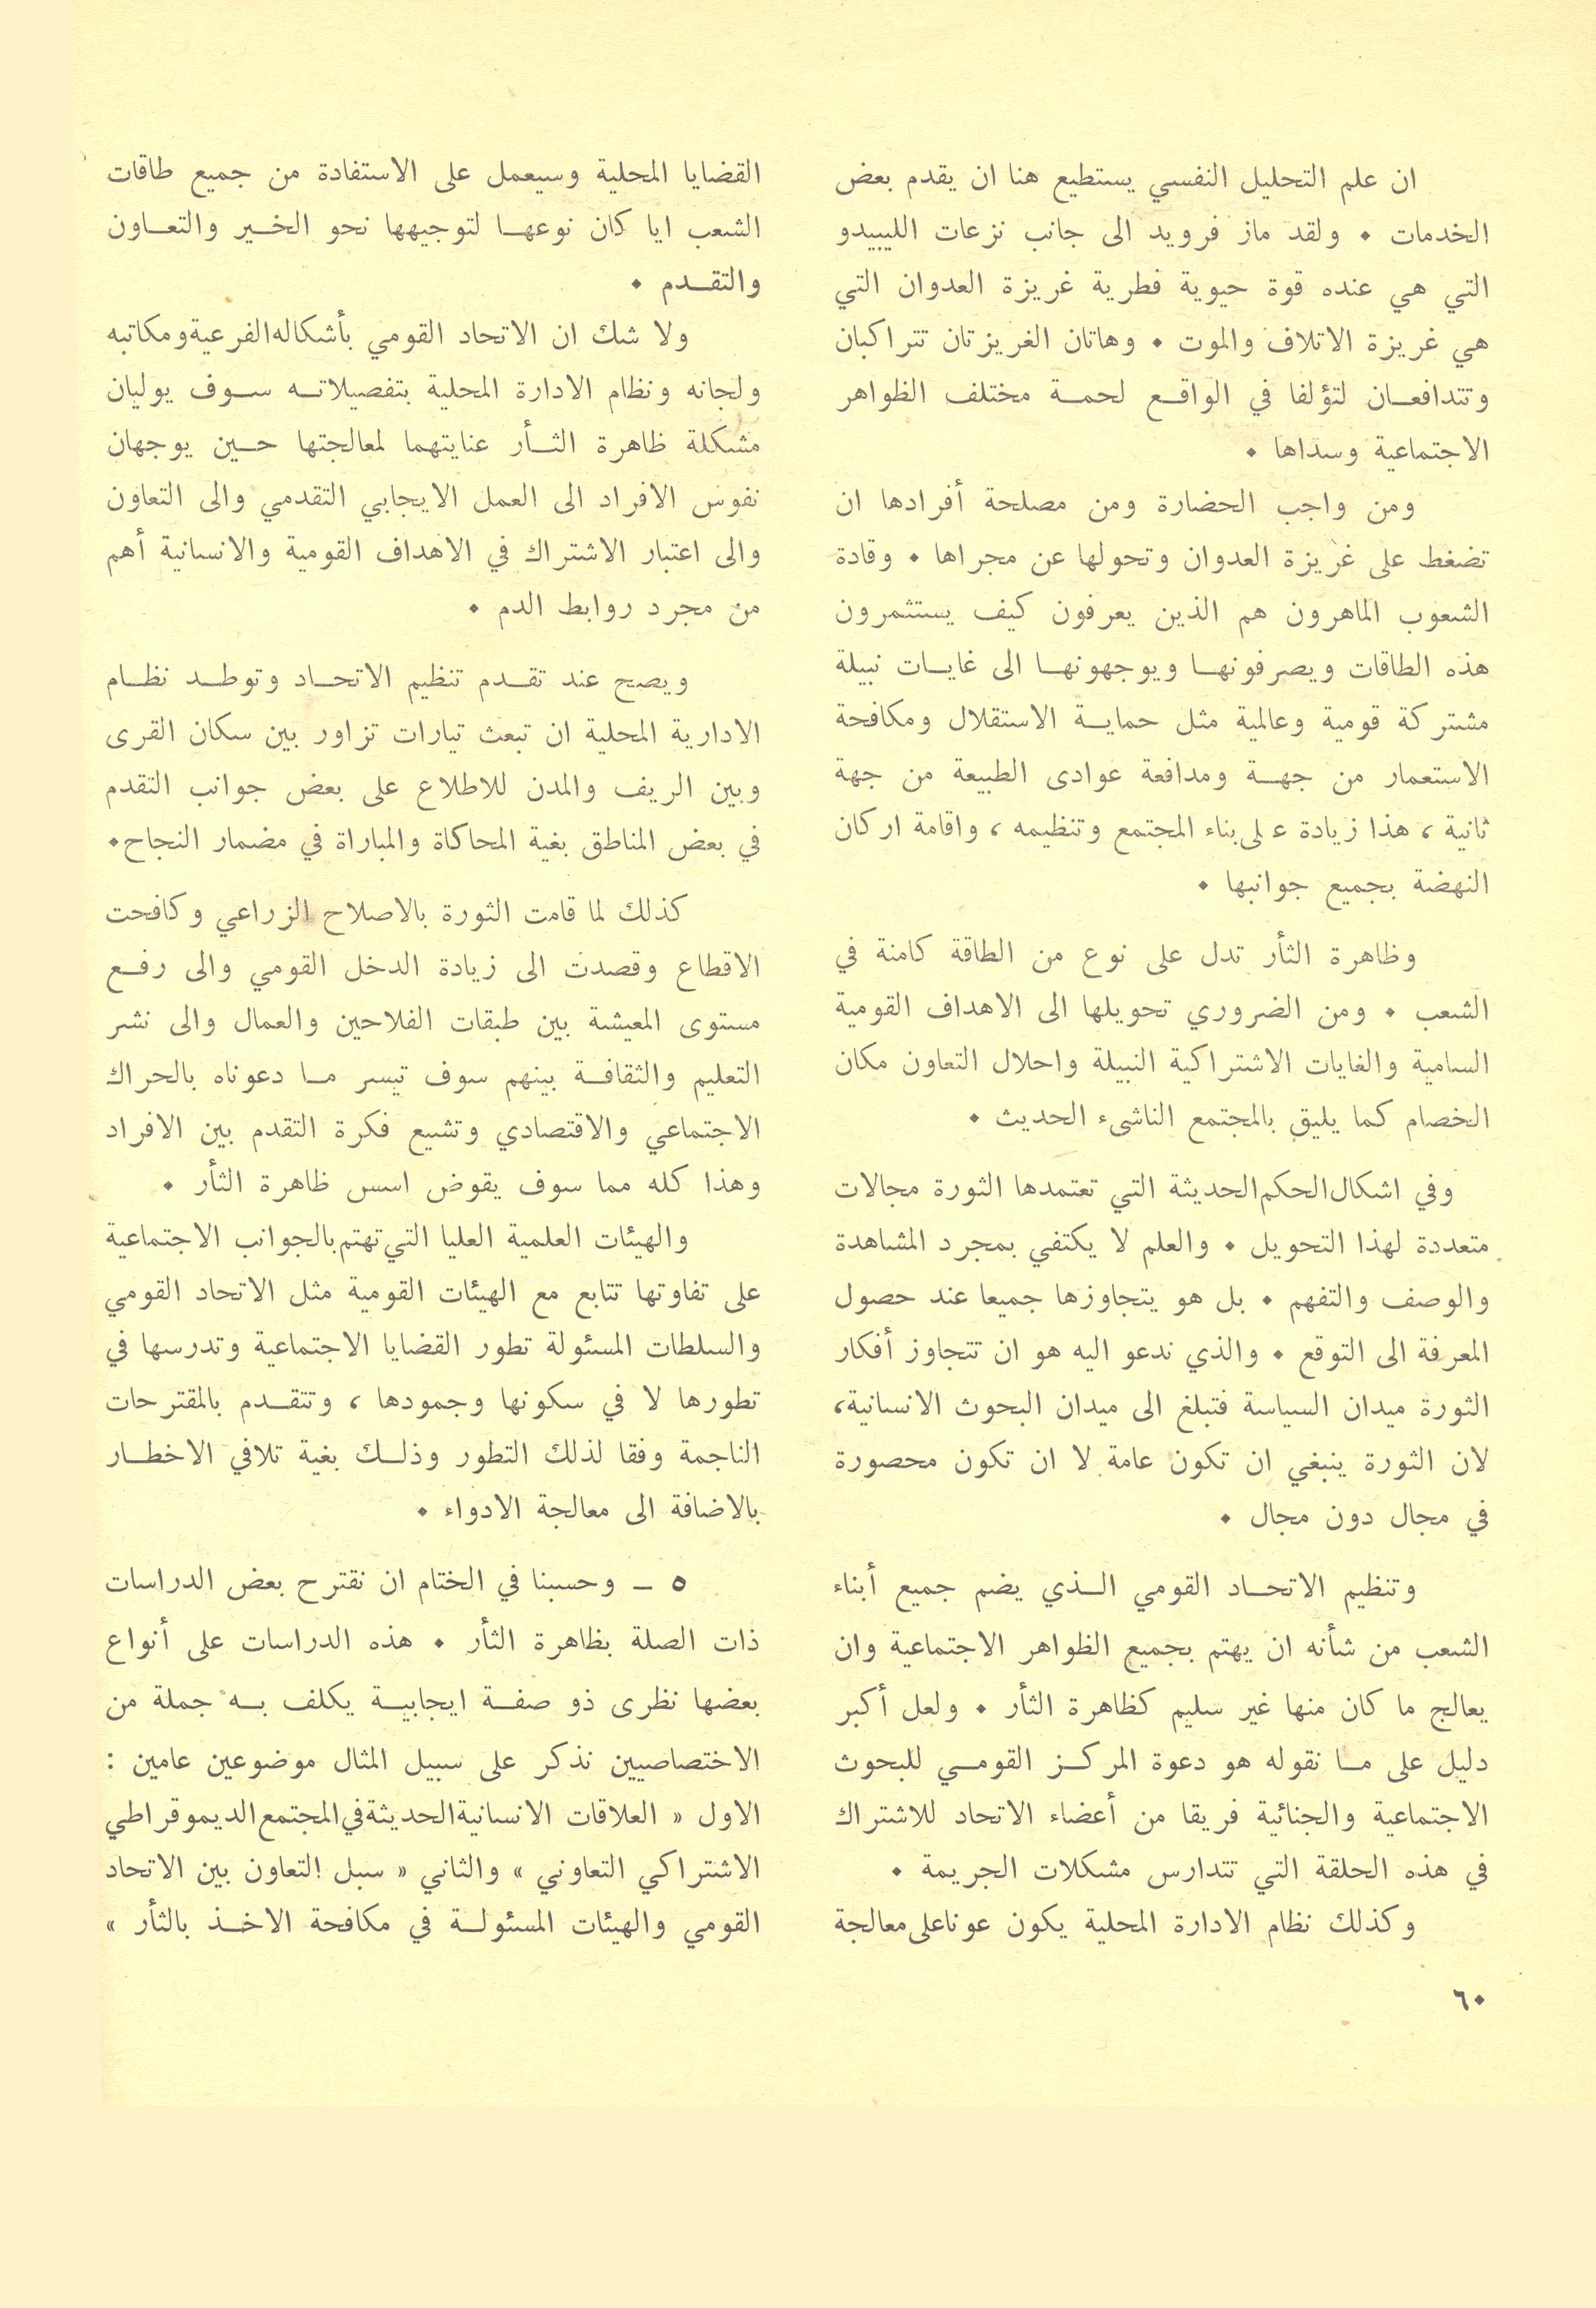 ان علم التحليل النفسي يستطيع هنا ان يقدم بعض
الخدمات ٠ ولقد ماز فرويد الى جانب نزعات الليبيدو
التي هي عنده قوة حيوية فطرية غريزة العدوان التي
هي غريزة الاتلاف والموت ٠ وهاتان الغريزتان تتراكبان
وتتدافعان لتؤلفا في الواقع لحمة مختلف الظواهر
الاجتماعية وسداها ٠
ومن واجب الحضارة ومن مصلحة أفرادها ان
تضغط على غريزة العدوان وتحولها عن مجراها ٠ وقادة
الشعوب الماهرون هم الذين يعرفون كيف يستثمرون
هذه الطاقات ويصرفونها ويوجهونها الى غايات نبيلة
مشتركة قومية وعالمية مثل حماية الاستقلال ومكافحة
الاستعمار من جهة ومدافعة عوادى الطبيعة من جهة
ثانية ، هذا زيادة على بناء المجتمع وتنظيمه ، واقامة اركان
النهضة بجميع جوانبها ٠
وظاهرة الثأر تدل على نوع من الطاقة كامنة في
الشعب ٠ ومن الضروري تحويلها الى الاهداف القومية
السامية والغايات الاشتراكية النبيلة واحلال التعاون مكان
الخصام كما يليق بالمجتمع الناشىء الحديث ٠
وفي اشكال الحكم الحديثة التي تعتمدها الثورة مجالات
متعددة لهذا التحويل ٠ والعلم لا يكتفي بمجرد المشاهدة
والوصف والتفهم ٠ بل هو يتجاوزها جميعا عند حصول
المعرفة الى التوقع ٠ والذي ندعو اليه هو ان تتجاوز أفكار
الثورة ميدان السياسة فتبلغ الى ميدان البحوث الانسانية،
لان الثورة ينبغي ان تكون عامة لا ان تكون محصورة
في مجال دون مجال ٠
وتنظيم الاتحاد القومي الذي يضم جميع أبناء
الشعب من شأنه ان يهتم بجميع الظواهر الاجتماعية وان
يعالج ما كان منها غير سليم كظاهرة الثأر ٠ ولعل أكبر
دليل على ما نقوله هو دعوة المركز القومي للبحوث
الاجتماعية والجنائية فريقا من أعضاء الاتحاد للاشتراك
في هذه الحلقة التي تتدارس مشكلات الجريمة ٠
وكذلك نظام الادارة المحلية يكون عونا على معالجة
القضايا المحلية وسيعمل على الاستفادة من جميع طاقات
الشعب ايا كان نوعها لتوجيهها نحو الخير والتعاون
والتقدم ٠
ولا شك ان الاتحاد القومي بأشكاله الفرعية ومكاتبه
ولجانه ونظام الادارة المحلية بتفصيلاته سوف يوليان
مشكلة ظاهرة الثأر عنايتهما لمعالجتها حين يوجهان
نفوس الافراد الى العمل الايجابي التقدمي والى التعاون
والى اعتبار الاشتراك في الاهداف القومية والانسانية أهم
من مجرد روابط الدم ٠
ويصح عند تقدم تنظيم الاتحاد وتوطد نظام
الادارية المحلية ان تبعث تيارات تزاور بين سكان القرى
وبين الريف والمدن للاطلاع على بعض جوانب التقدم
في بعض المناطق بغية المحاكاة والمباراة في مضمار النجاح٠
كذلك لما قامت الثورة بالاصلاح الزراعي وكافحت
الاقطاع وقصدت الى زيادة الدخل القومي والى رفع
مستوى المعيشة بين طبقات الفلاحين والعمال والى نشر
التعليم والثقافة بينهم سوف تيسر ما دعوناه بالحراك
الاجتماعي والاقتصادي وتشيع فكرة التقدم بين الافراد
وهذا كله مما سوف يقوض اسس ظاهرة الثأر ٠
والهيئات العلمية العليا التي تهتم بالجوانب الاجتماعية
على تفاوتها تتابع مع الهيئات القومية مثل الاتحاد القومي
والسلطات المسئولة تطور القضايا الاجتماعية وتدرسها في
تطورها لا في سكونها وجمودها ، وتتقدم بالمقترحات
الناجمة وفقا لذلك التطور وذلك بغية تلافي الاخطار
بالاضافة الى معالجة الادواء ٠
٥ – وحسبنا في الختام ان نقترح بعض الدراسات
ذات الصلة بظاهرة الثأر ٠ هذه الدراسات على أنواع
بعضها نظرى ذو صفة ايجابية يكلف به جملة من
الاختصاصيين نذكر على سبيل المثال موضوعين عامين :
الاول « العلاقات الانسانية الحديثة في المجتمع الديموقراطي
الاشتراكي التعاوني » والثاني « سبل التعاون بين الاتحاد
القومي والهيئات المسئولة في مكافحة الاخذ بالثأر »
٦٠